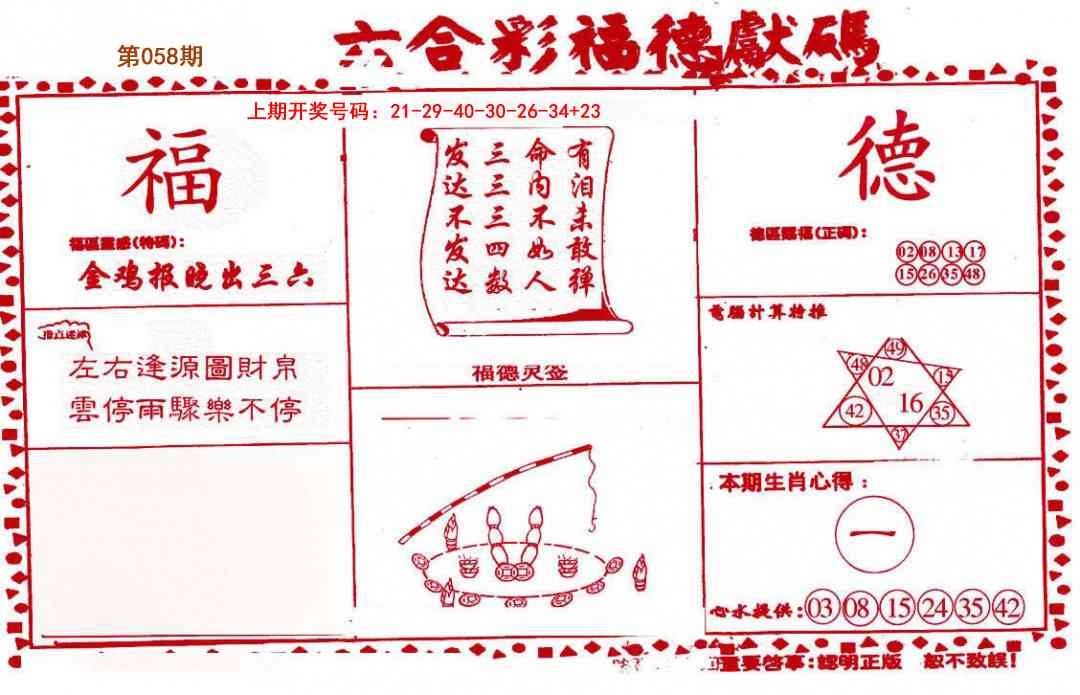 六合彩福德獻碼
第058期
上期开奖号码：21-29-40-30-26-34+23
福
福區靈感(特碼)：
金鸡报晚出三六
左右逢源圖財帛
雲停雨驟樂不停
有泪未敢弹
命内不如人
三三三四数
发达不发达
福德灵签
德
德區賜福(正碼)：
02 08 13 17
15 26 35 48
電腦計算特推
49
48 15
02
16
42 35
37
本期生肖心得：
一
心水提供：03 08 15 24 35 42
重要啓事：認明正版 恕不致誤！